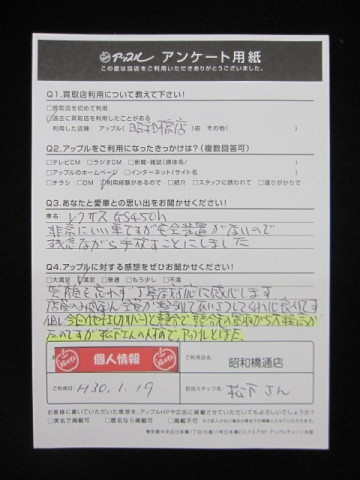 アップル アンケート用紙
この度は当店をご利用いただきありがとうございました。
Q1.買取店利用について教えて下さい!
□買取店を初めて利用
□過去に買取店を利用したことがある
利用した店舗 アップル(昭和橋店)店 その他( )
Q2.アップルをご利用になったきっかけは?(複数回答可)
□テレビCM □ラジオCM □新聞・雑誌(媒体名: )
□アップルのホームページ □インターネット(サイト名 )
□チラシ □DM □利用経験があるので □紹介 □スタッフに誘われて □通りがかりで
Q3.あなたと愛車との思い出をお聞かせください!
車名: レクサス GS450h
非常にいい車ですが安全装置がないので
残念ながら手放すことにしました
Q4.アップルに対する感想をぜひお聞かせください!
□大満足 □満足 □普通 □もう少し □不満
笑顔を忘れず 丁寧な対応に感心します
個人情報
ご利用店名:
昭和橋通店
ご利用日:
H30.1.19
担当スタッフ名:
松下さん
お客様に書いていただいた感想を、アップルHPや広告に掲載させていただいてもよろしいでしょうか?
□実名で掲載可 □匿名なら掲載可 □掲載不可